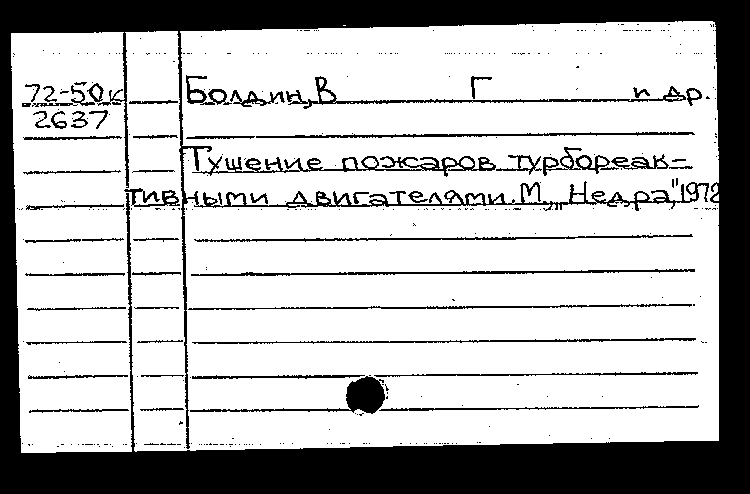 72-50к Болдин, В Г и др.
2637
Тушение пожаров турбореак-
тивными двигателями. М., „Недра," 1972